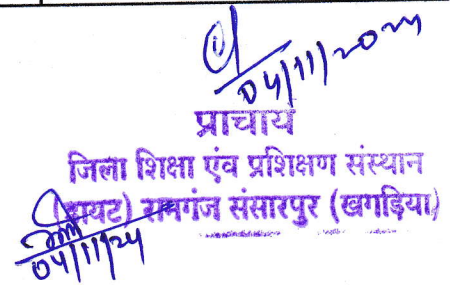 04/11/2024
प्राचार्य
जिला शिक्षा एंव प्रशिक्षण संस्थान
(डायट) रामगंज संसारपुर (खगड़िया)
04/11/24